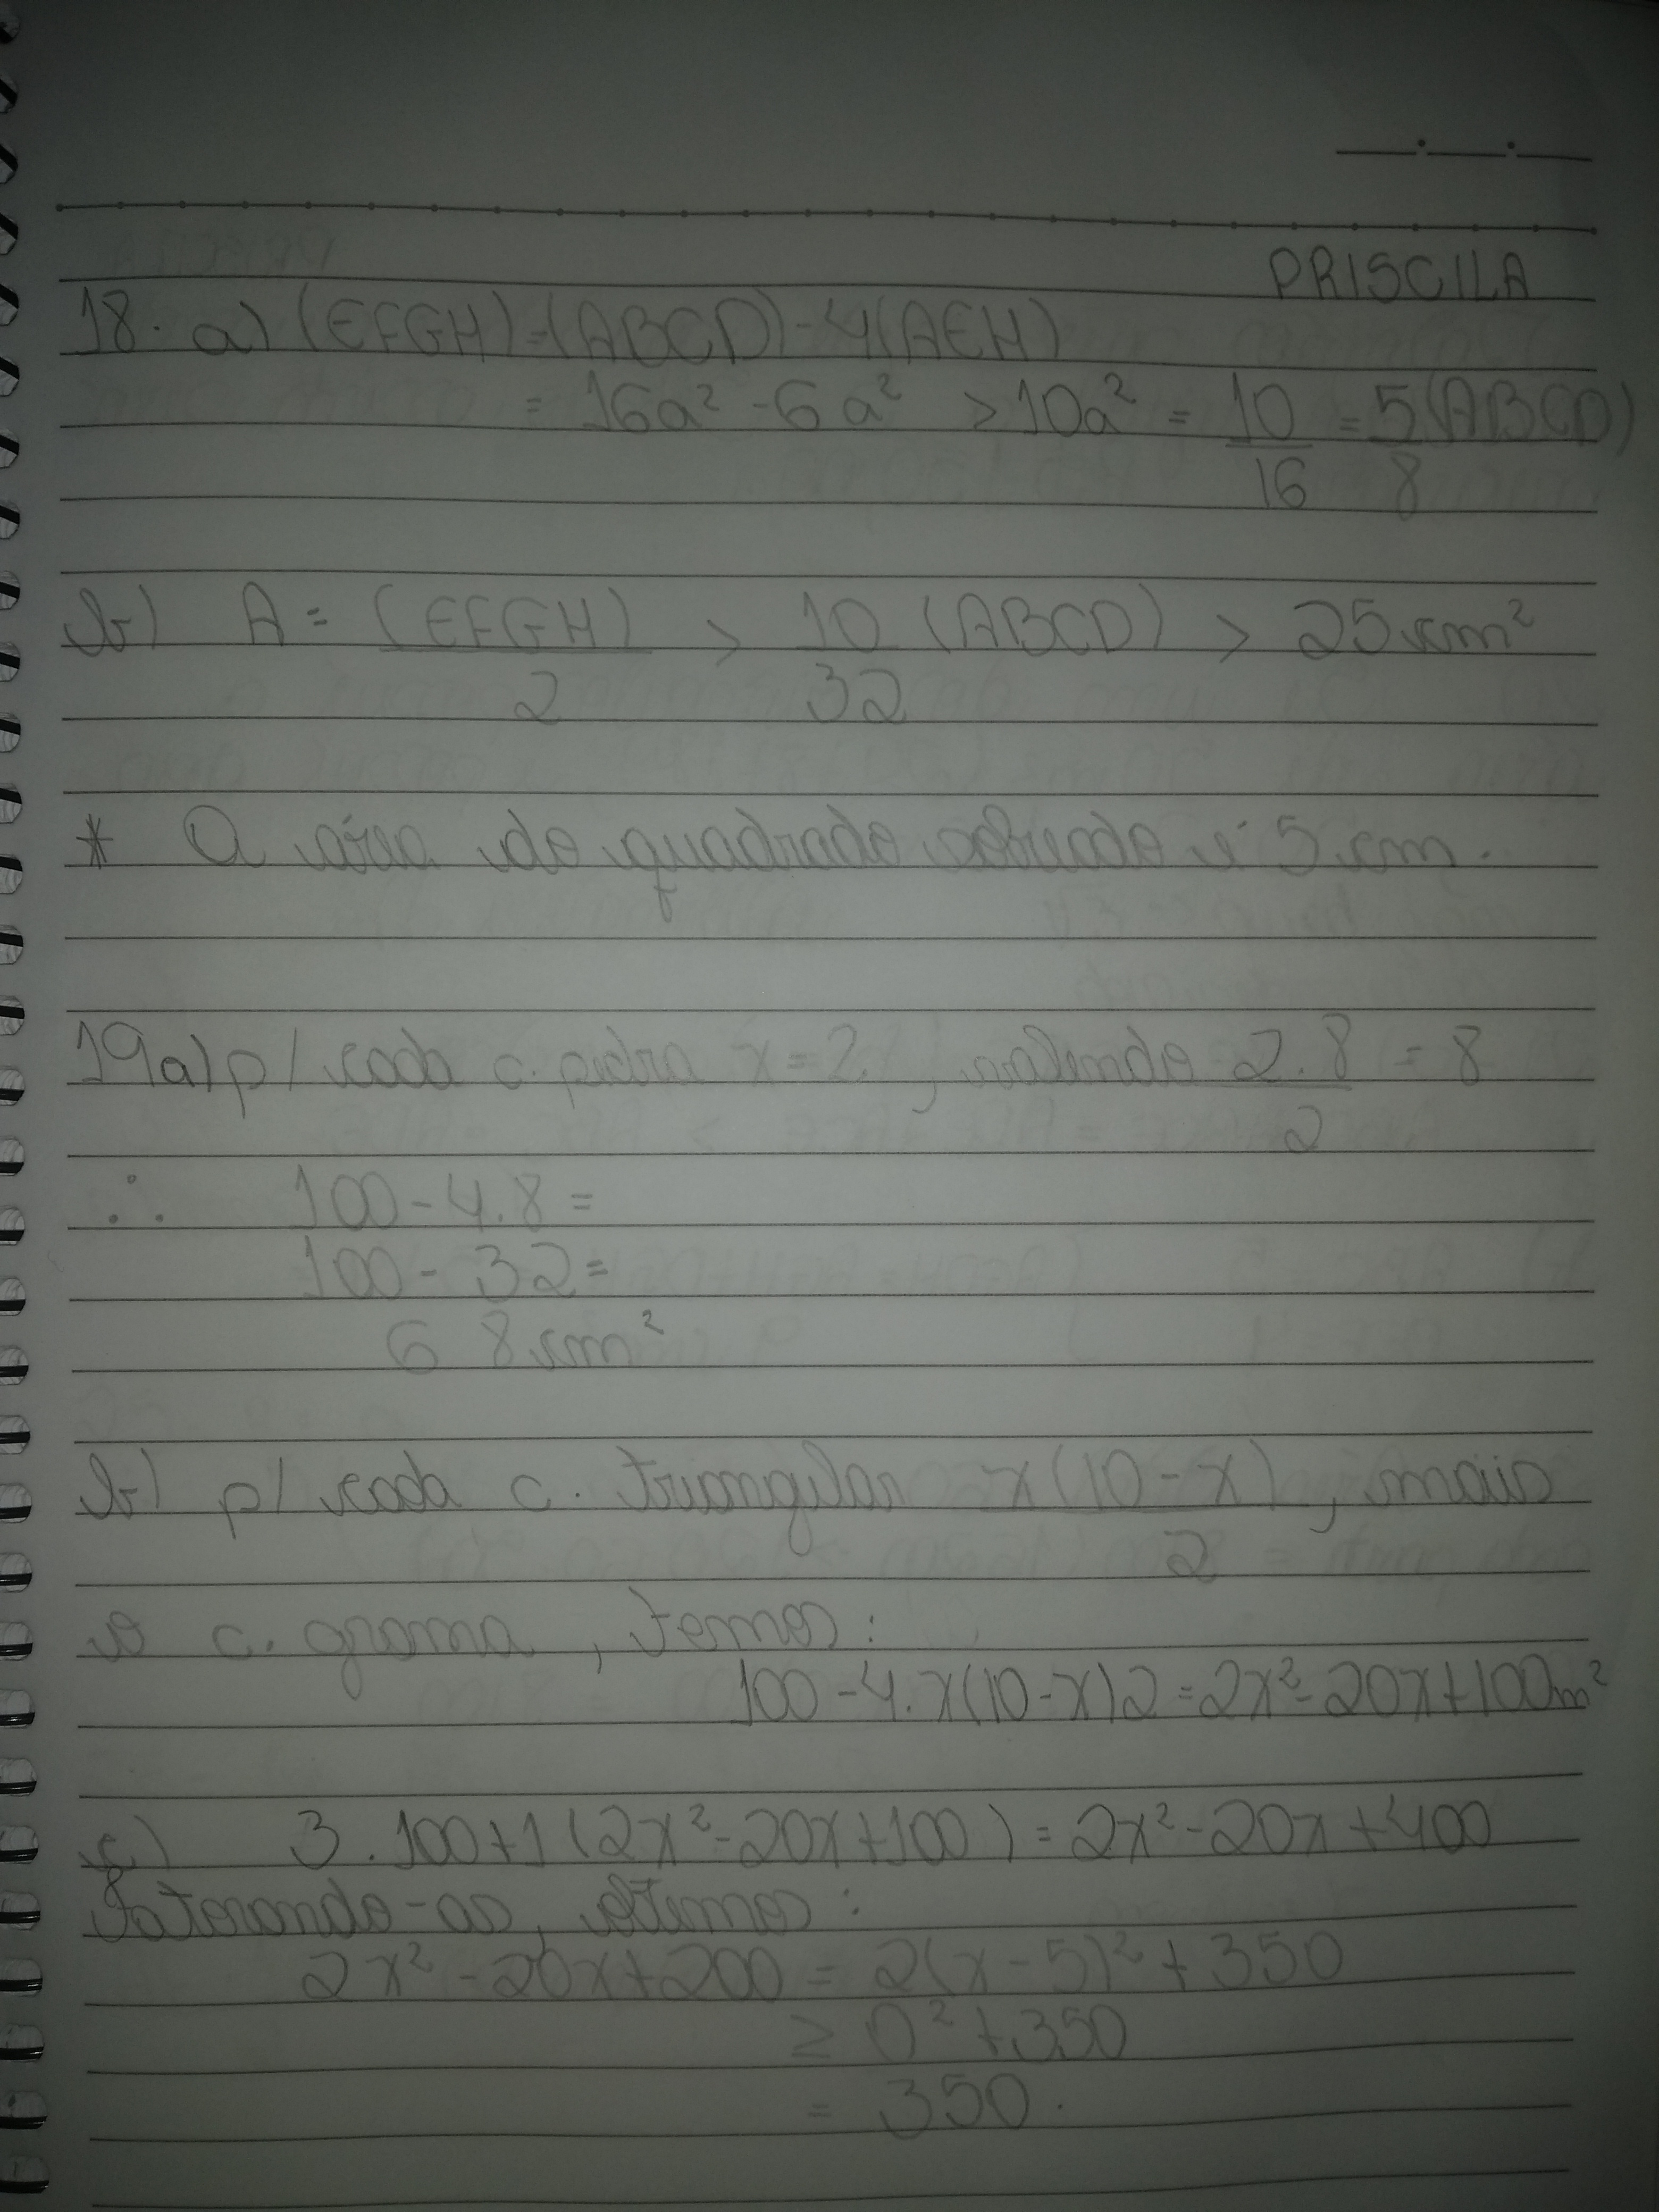 PRISCILA
18. a) (EFGH)=(ABCD)-4(AEH)
= 16a² - 6a² > 10a² = 10/16 = 5/8 (ABCD)
b) A = (EFGH)/2 > 10/32 (ABCD) > 25 cm²
* A área do quadrado sobreado é 5 cm.
19a) p/ cada c. pedra x = 2, valendo 2.8/2 = 8
∴ 100 - 4.8 =
100 - 32 =
68 cm²
b) p/ cada c. triangular x(10-x)/2, mais
o c. grama, temos:
100 - 4.x(10-x)2 = 2x² - 20x + 100m²
c) 3.100+1(2x²-20x+100) = 2x²-20x+400
Fatorando-as, obtemos:
2x² - 20x + 200 = 2(x-5)² + 350
≥ 0² + 350
= 350.